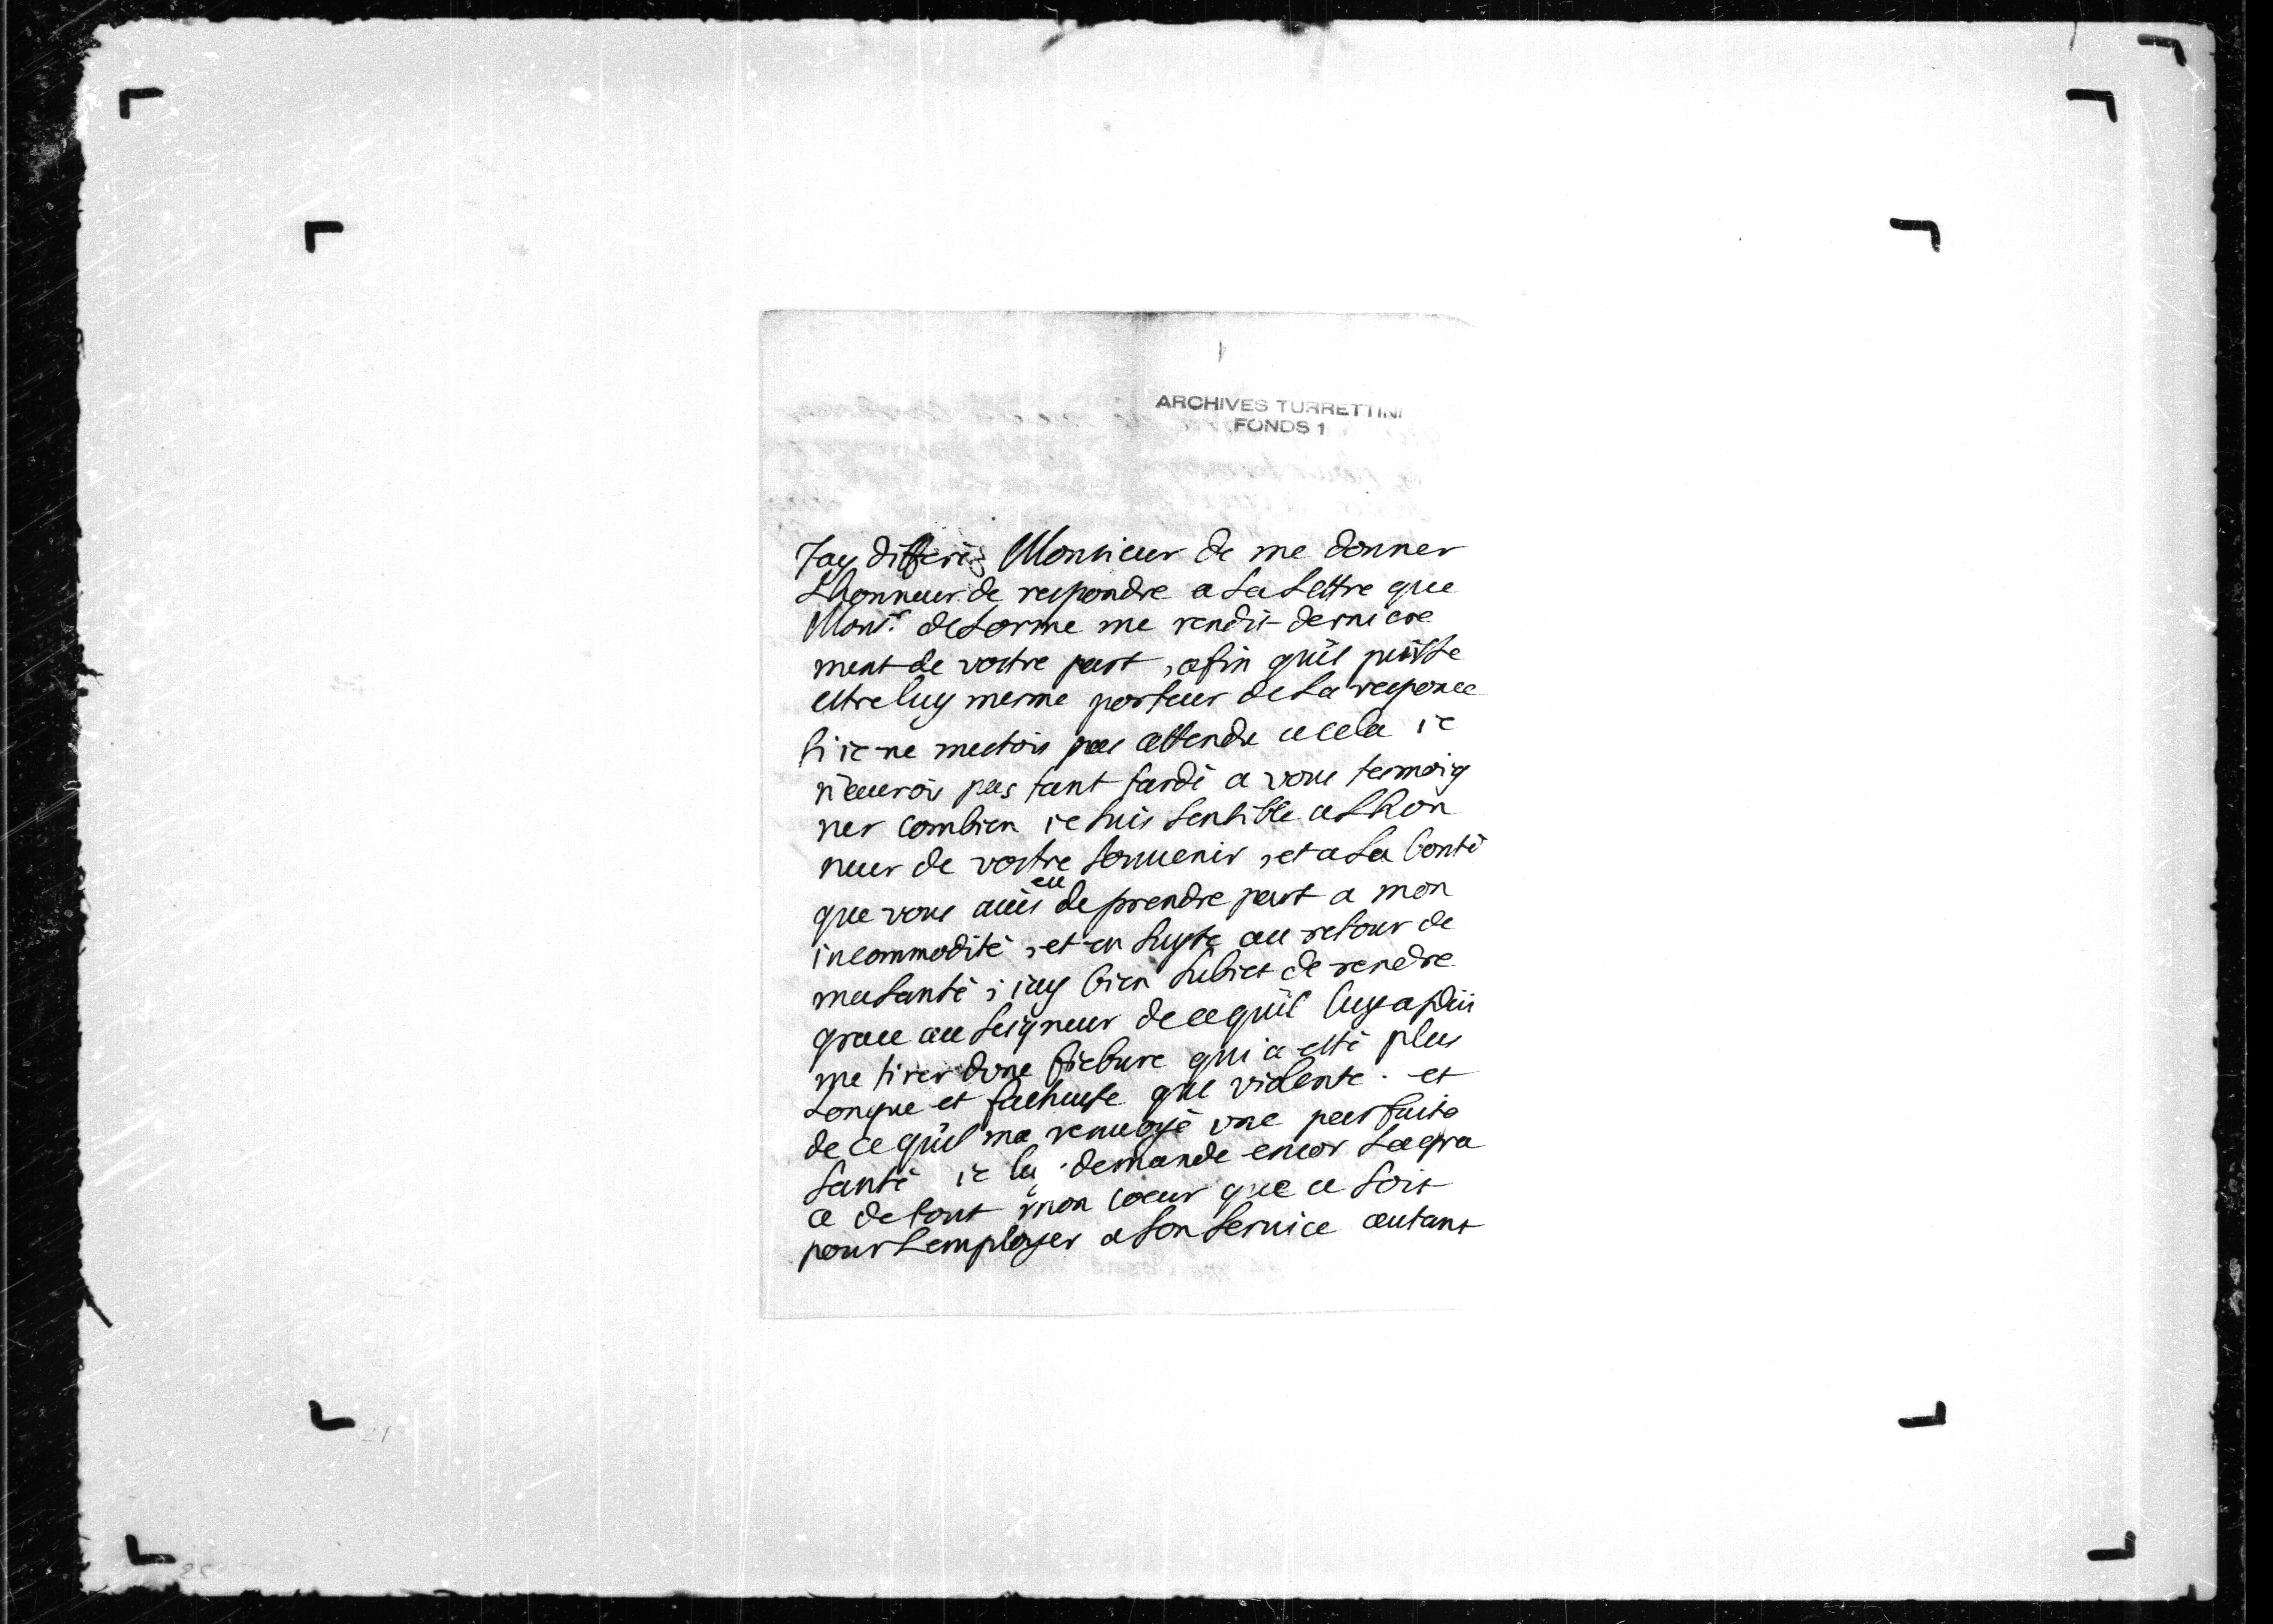 1
ARCHIVES TURRETTINI
FONDS 1
Jay differèz Monsieur de me donner
Lhonneur de respondre a La Lettre que
Monsr. deLorme me rendit derniere
ment de vostre part, afin quil puisse
estre luy mesme porteur de La responce
si ie ne mestois pas attendu a cela ie
naurois pas tant tardé a vous temoig
ner combien ie suis sensible a Lhon
neur de vostre souuenir, et a La bonté
que vous aués eu de prendre part a mon
incommodité, et en suyte au retour de
ma santé; iay bien subiet de rendre
grace au seigneur de ce quil luy a pleü
me tirer dune fiebure qui a esté plus
Longue et facheuse que violente. et
de ce quil ma renuoyé vne parfaite
santé ie luy demande encor La gra
ce de tout mon coeur que ce soit
pour Lemployer a son seruice autant